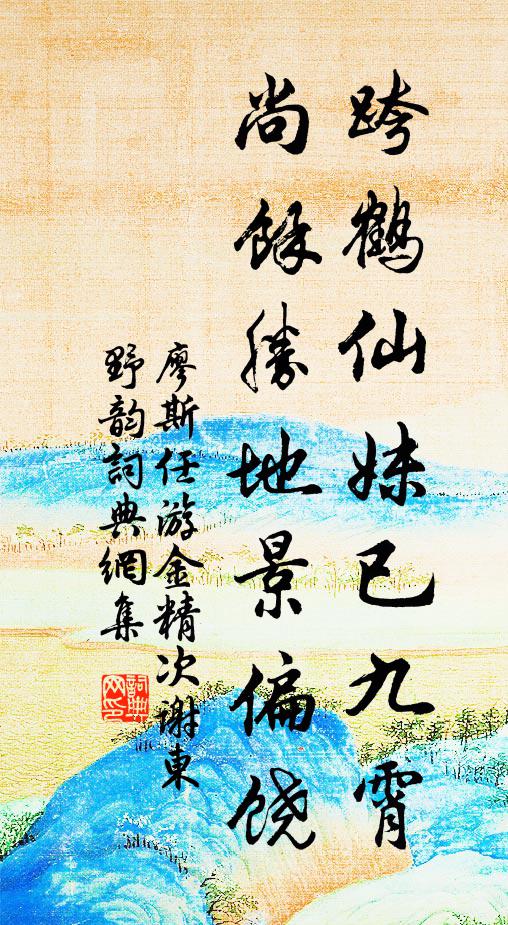 跨鹤仙妹已九霄
尚餘勝地景偏饶
廖斯任游金精次谢東
野韵詞典網集
詞典网印